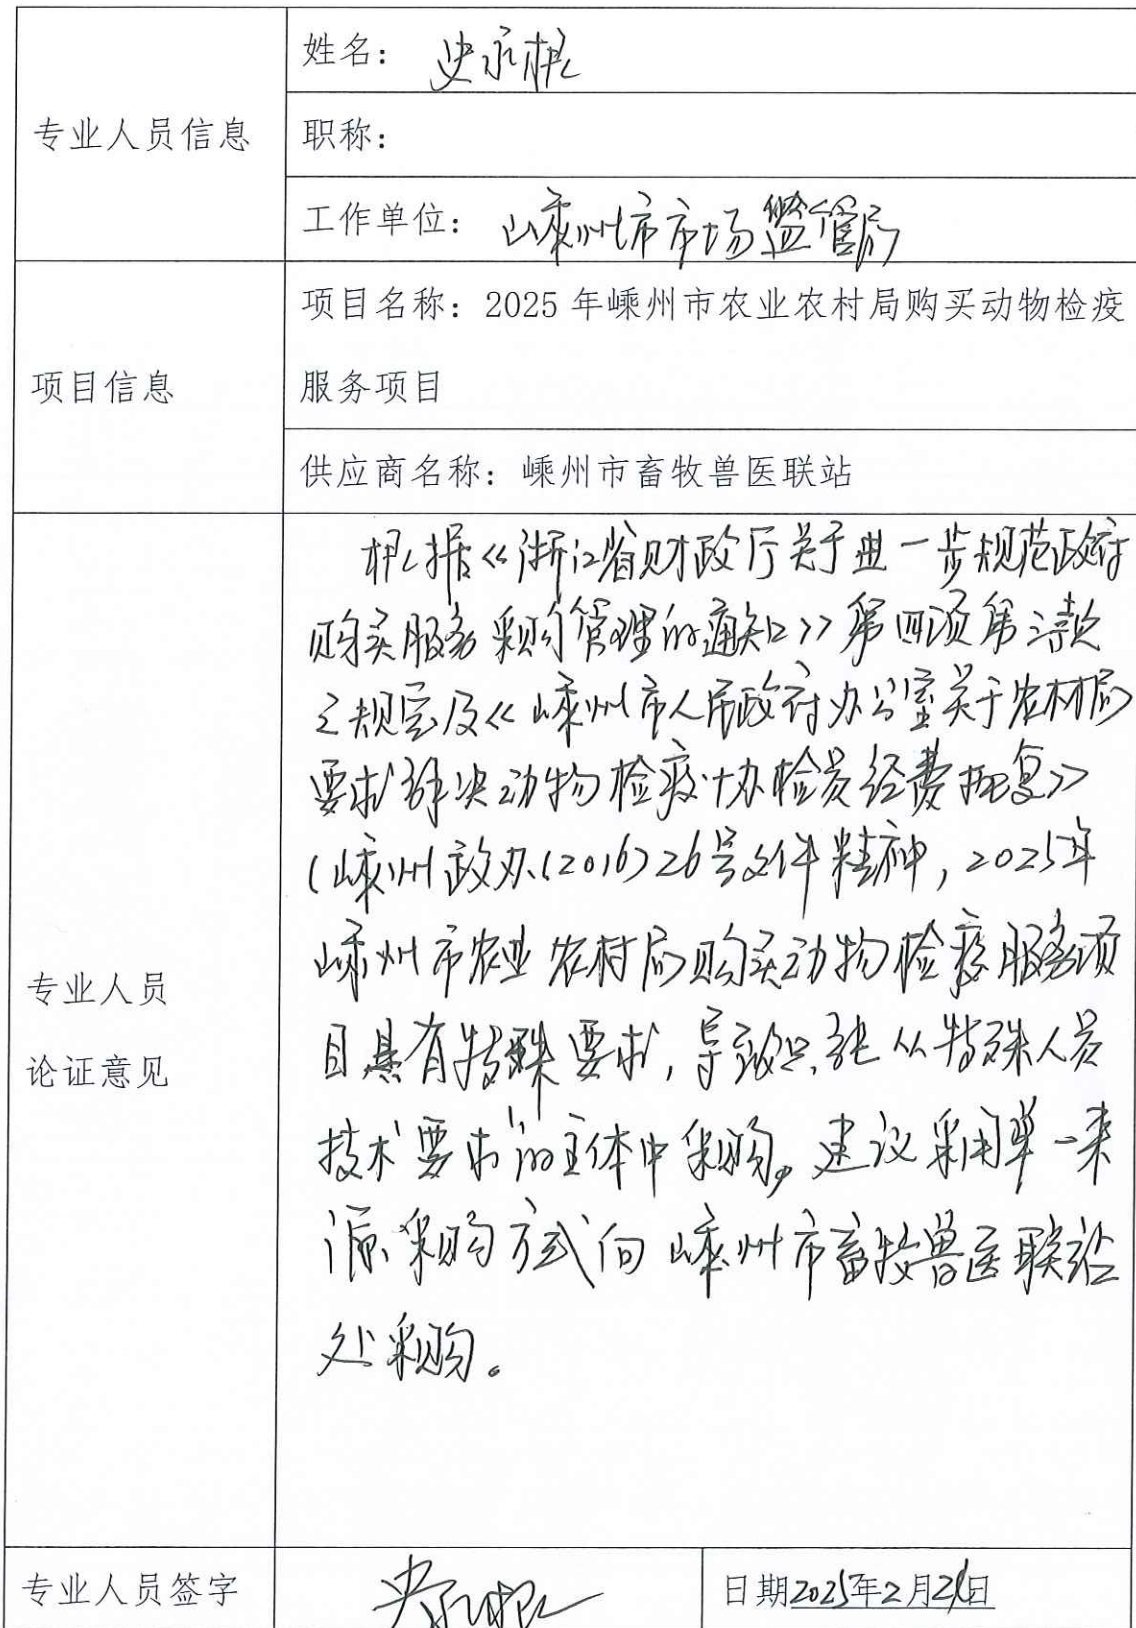 专业人员信息
姓名：史永根
职称：
工作单位：嵊州市市场监管局
项目信息
项目名称：2025年嵊州市农业农村局购买动物检疫
服务项目
供应商名称：嵊州市畜牧兽医联站
专业人员
论证意见
根据《浙江省财政厅关于进一步规范政府
购买服务采购管理的通知》第四项第三款
之规定及《嵊州市人民政府办公室关于农村局
要求解决动物检疫协检员经费批复》
(嵊州政办(2016)26号文件精神，2025年
嵊州市农业农村局购买动物检疫服务项
目具有特殊要求，导致只能从特殊人员
技术要求的主体中采购。建议采用单一来
源采购方式向嵊州市畜牧兽医联站
处采购。
专业人员签字 史永根 日期2025年2月2日